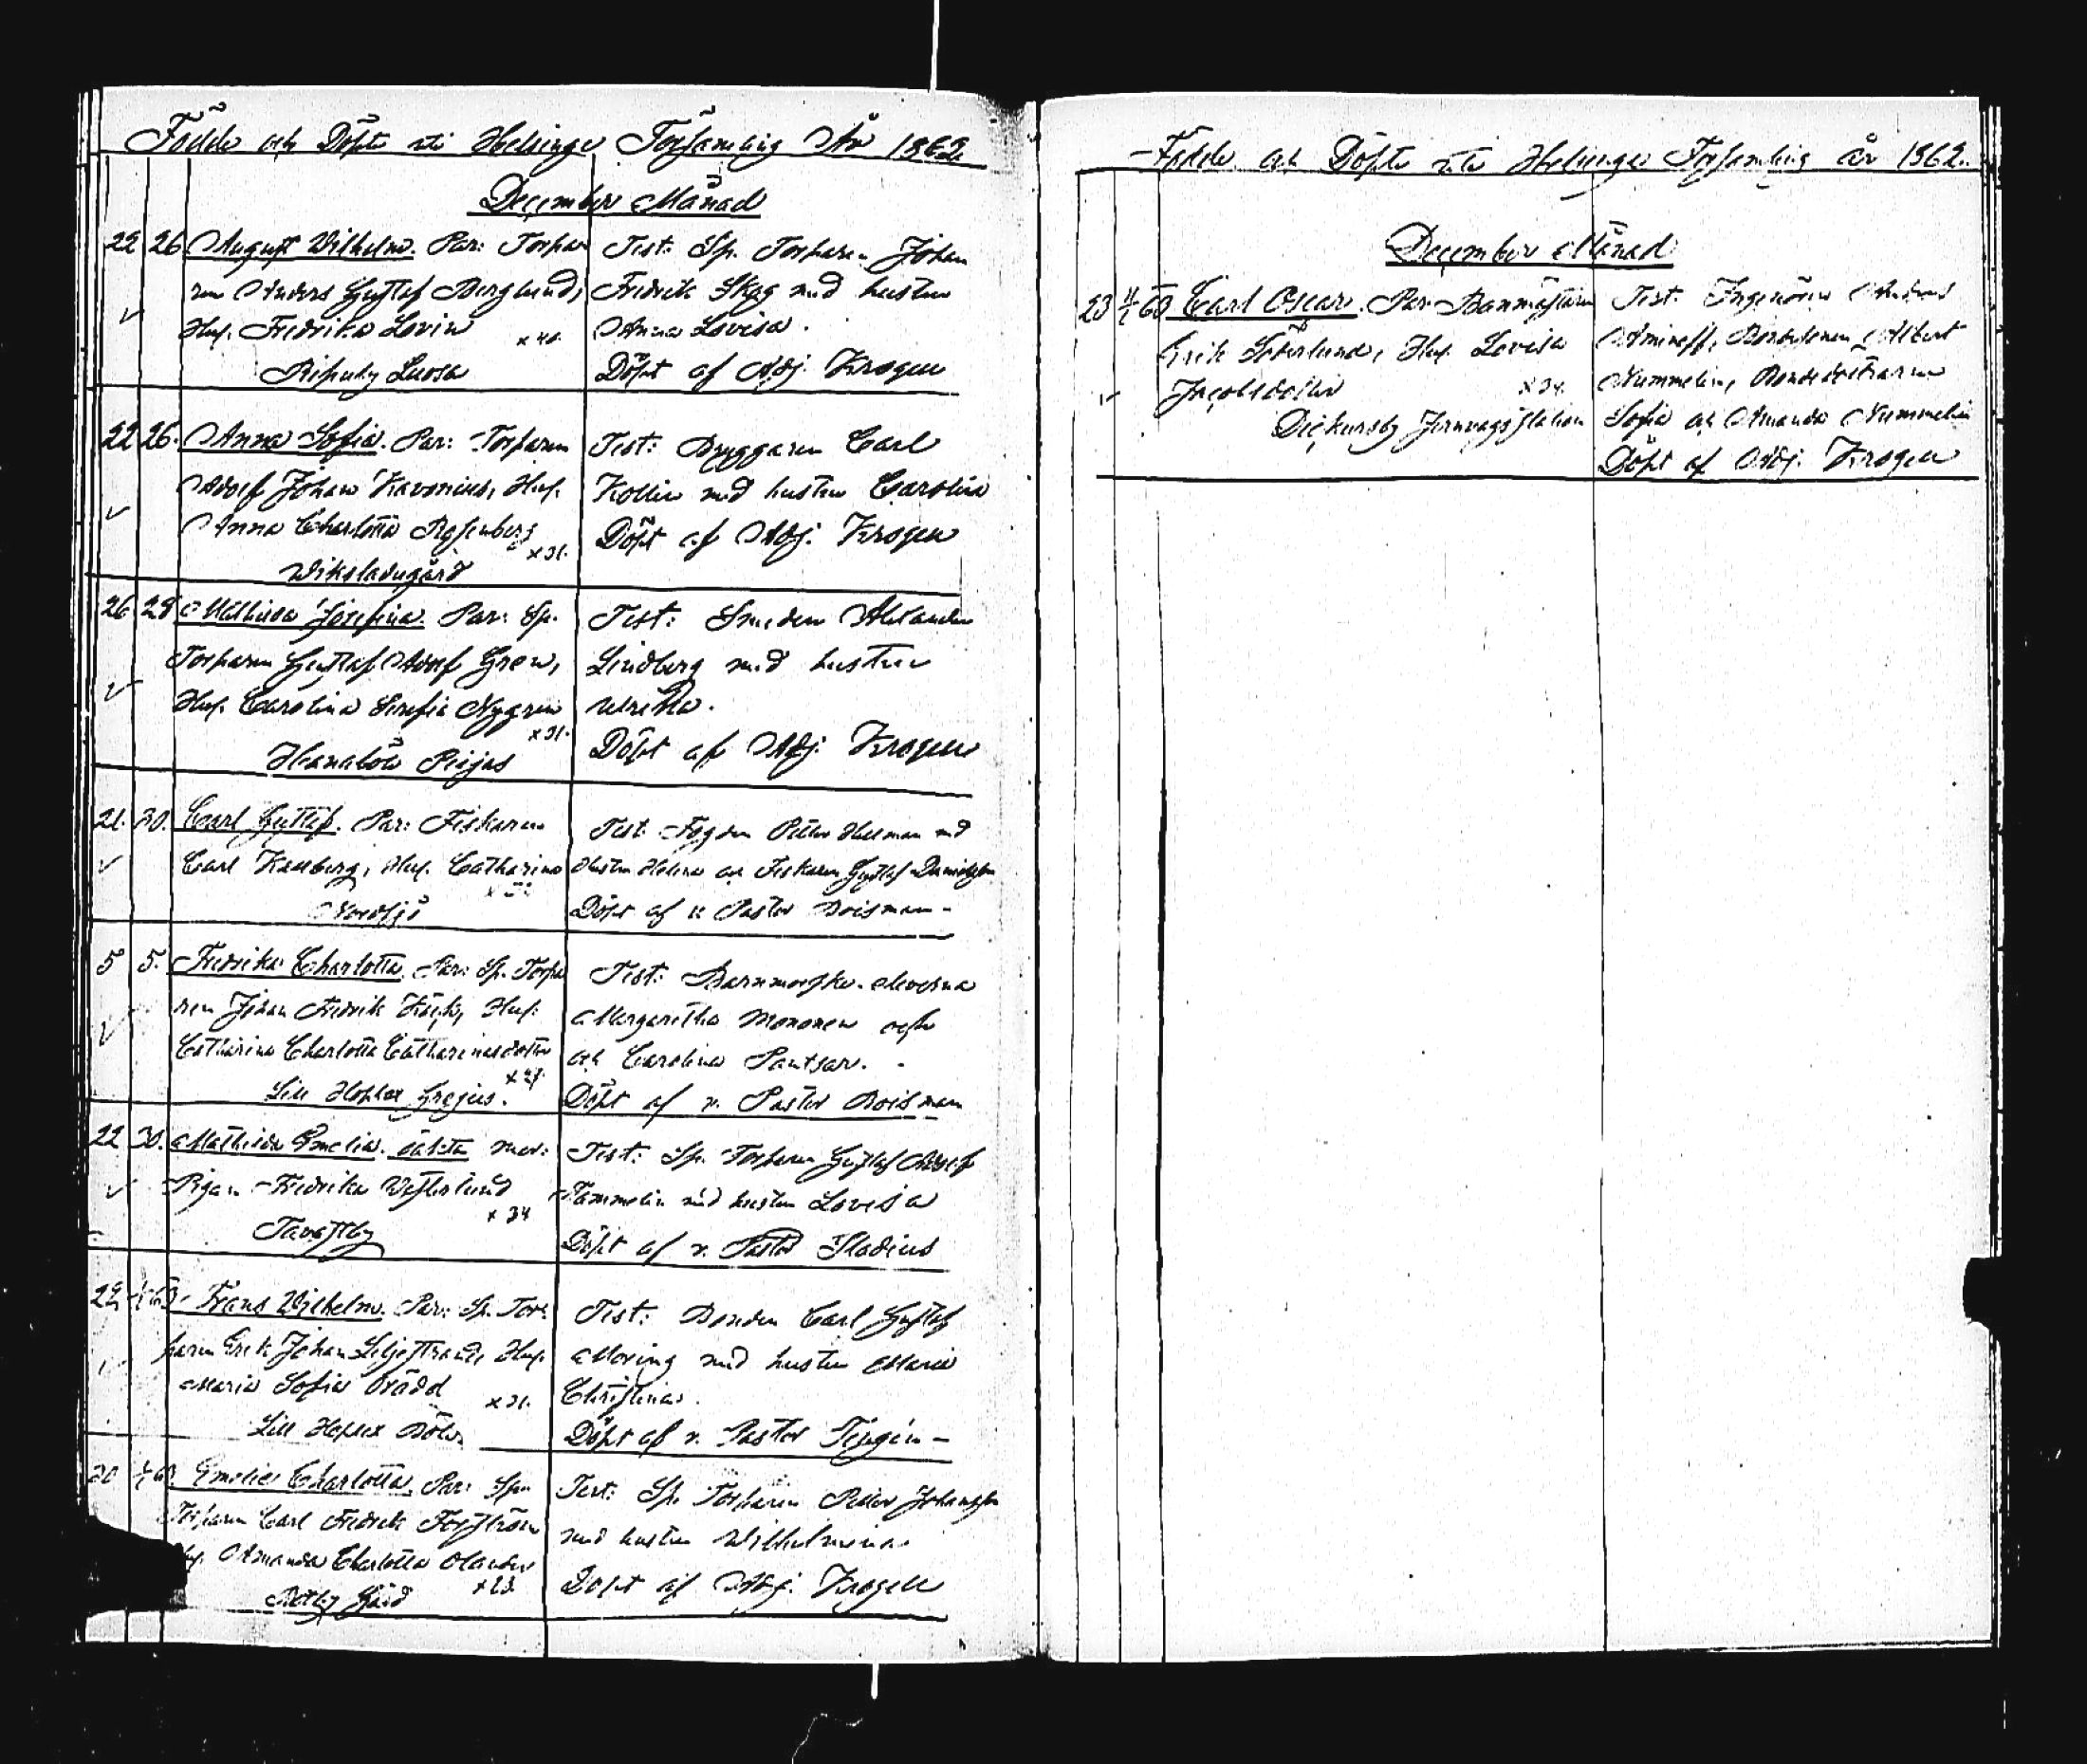 Födde och Döpte uti Helsinge Församling År 1862
December Månad
22 26 August Wilhelm. Par: Torpa
ren Anders Gustaf Berglund,
Hus. Fredrika Lovin x 40.
Ripuby Luosa
Test: Sp. Torparen Johan
Fredrik Skog med hustru
Anna Lovisa.
Döpt af Adj. Krogell
22 26. Anna Sofia. Par: Torparen
Adolf Johan Kavonius, Hus.
Anna Charlotta Rosenberg x 31.
Wiksladugård
Test: Bryggaren Carl
Kollin med hustru Carolina
Döpt af Adj. Krogell
26 28 Mathilda Josefina. Par: Sp.
Torparen Gustaf Adolf Gren,
Hus. Carolina Serafia Nygren x 31.
Hanaböle Pigjas
Test: Smeden
Lindberg med hustru
Ulrika.
Döpt af Adj Krogell
21. 30. Carl Gustaf. Par: Fiskaren
Carl Kallberg, Hus. Catharina
Nordsjö
Test: Fogden Petter Hellman md
Hustru Helena och Fiskaren Gustaf
Döpt af v. Pastor Boisman-
5 5. Fredrika Charlotta. Par: Sp. Torpa
ren Johan Fredrik Hus.
Catharina Charlotta Catharinasdotter x 27.
Lill Hoplax Grejus.
Test: Barnmorskorna
Margaretha Mononen och
och Carolina Pantsar.
Döpt af v. Pastor Boisman
22 30. Mathilda Emelia. oäkta mor:
Pigan Fredrika Westerlund x 34
Tavastby
Test: Sp. Torparen Gustaf Adolf
Tammelin md hustru Lovisa
Döpt af v. Pastor Stadius
22 63. Frans Wilhelm. Par: Sp. Tor-
paren Erik Johan Liljestrand, Hus.
Maria Sofia Brådd x 31.
Lill Hoplax Böle
Test: Bonden Carl Gustaf
Moring md hustru Maria
Christina.
Döpt af v. Pastor
30 63. Emelie Charlotta. Par: Sp.
Torparen Carl Fredrik Forsström
Amanda Charlotta Olander x 23
Gård
Test: Sp. Torparen Petter Johansson
med hustru Wilhelmina
Döpt af Adj. Krogell
Födde och Döpte uti Helsinge Församling år 1862.
December Månad
23 63 Carl Oscar. Par: Banmästaren
Erik Söderlund, Hus. Lovisa
Jacobsdotter x 34.
Dickursby Jernvägsstation
Test: Ingeniören Anders
Amineff, Bondesonen Albert
Nummelin, Bondedöttrarna
Sofia och Amanda Nummelin
Döpt af Adj. Krogell